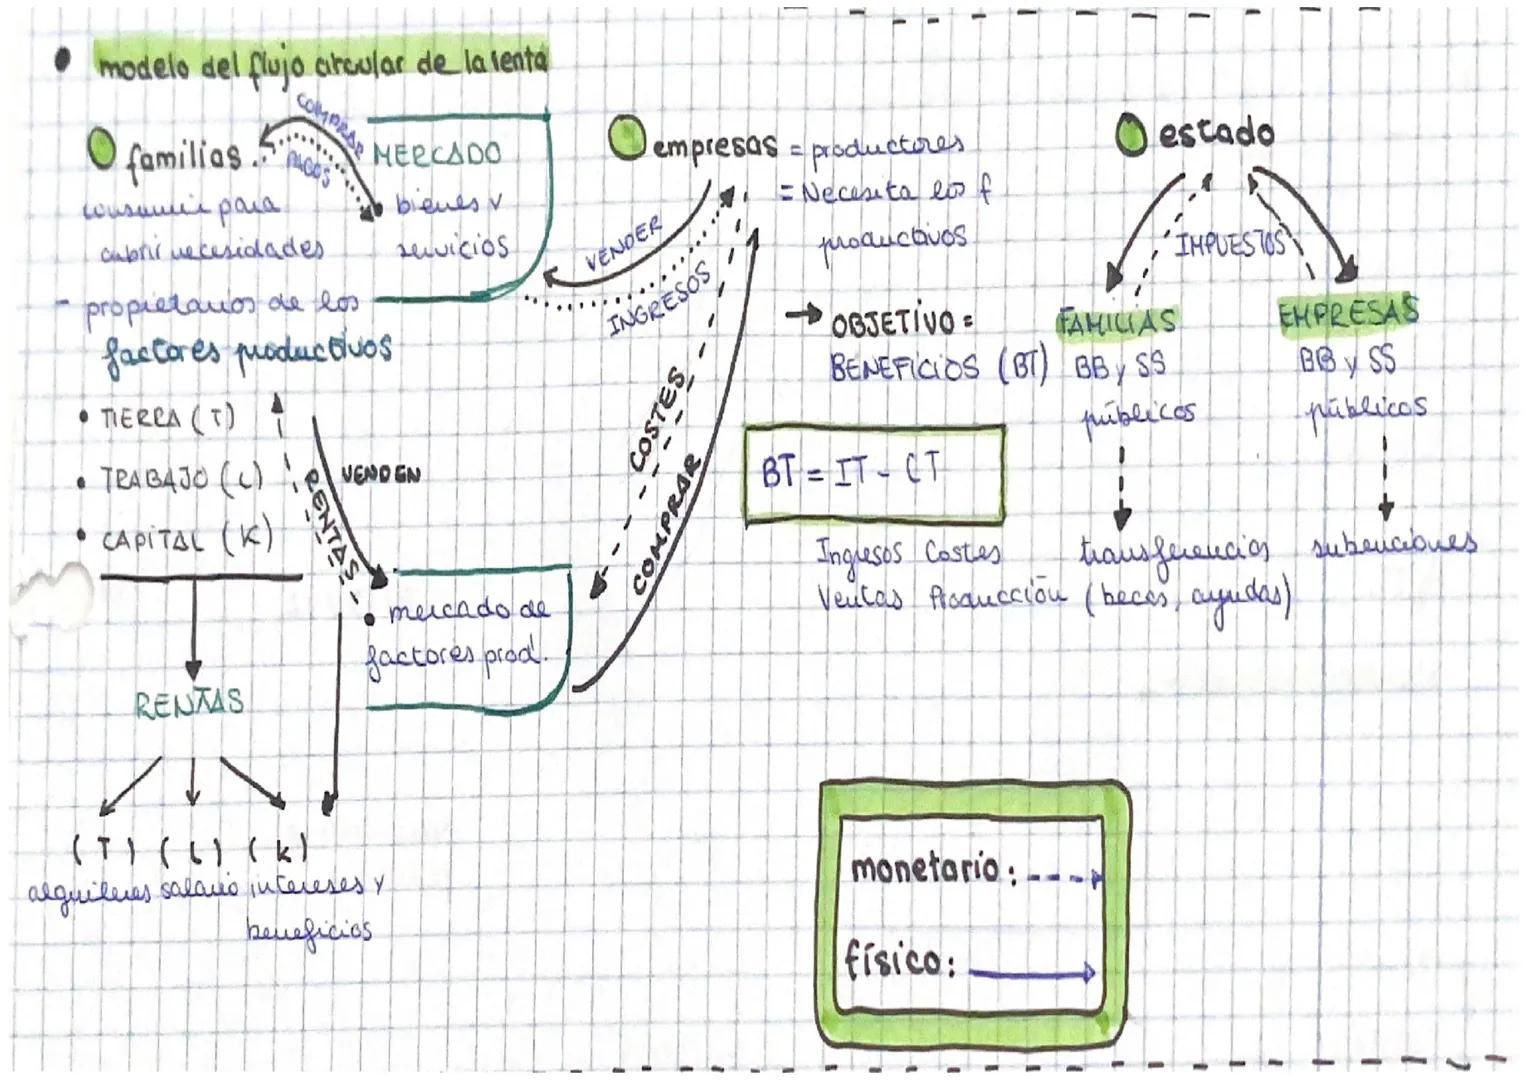 • modelo del flujo circular de la renta
familias
COMPRAR
PAGOS
consumir para
cubrir necesidades
- propietarios de los
factores productivos
• TIERRA (T)
• TRABAJO (L)
• CAPITAL (K)
MERCADO
• bienes y
servicios
VENDEN
RENTAS
• mercado de
factores prod.
RENTAS
(T) (L) (K)
alquileres salario intereses y
beneficios
empresas = productores
= Necesita los f
productivos
VENDER
INGRESOS
COSTES
COMPRAR
→ OBJETIVO =
BENEFICIOS (BT)
BT = IT - CT
Ingresos Costes
Ventas Producción
estado
IMPUESTOS
FAMILIAS
BB y SS
públicos
transferencias
(becas, ayudas)
EMPRESAS
BB y SS
públicos
subenciones
monetario: ---→
físico: →